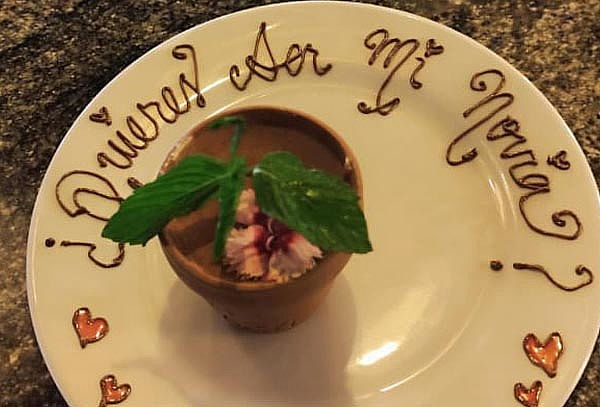 ¿Quieres Ser Mi Novia?